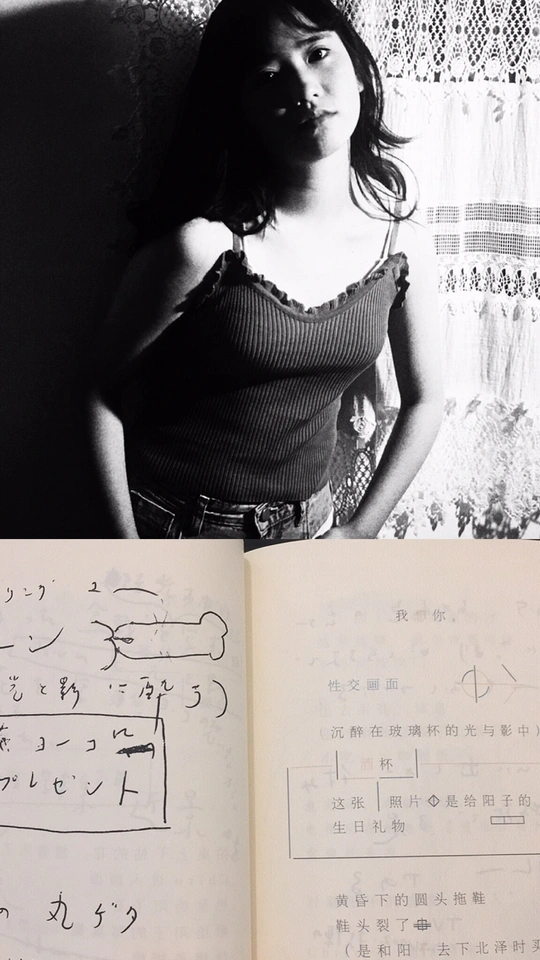 リング 2
ーン
光と影 に酔う)
ヨーコに
プレゼント
の 丸ゲタ
我 你,
性交画面
(沉醉在玻璃杯的光与影中)
酒杯
这张 照片 是给阳子的
生日礼物
黄昏下的圆头拖鞋
鞋头裂了
(是和阳 去下北泽时买